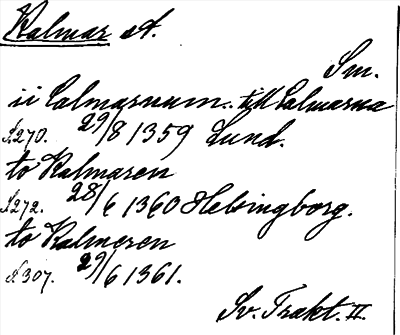 Kalmar st.
Sm.
ii Calmarnum. till Calmarna
s. 270. 29/8 1359 Lund.
to Kalmaren
s. 272. 28/6 1360 Helsingborg.
to Kalmeren
s. 307. 29/6 1361.
Sv. Trakt. II.